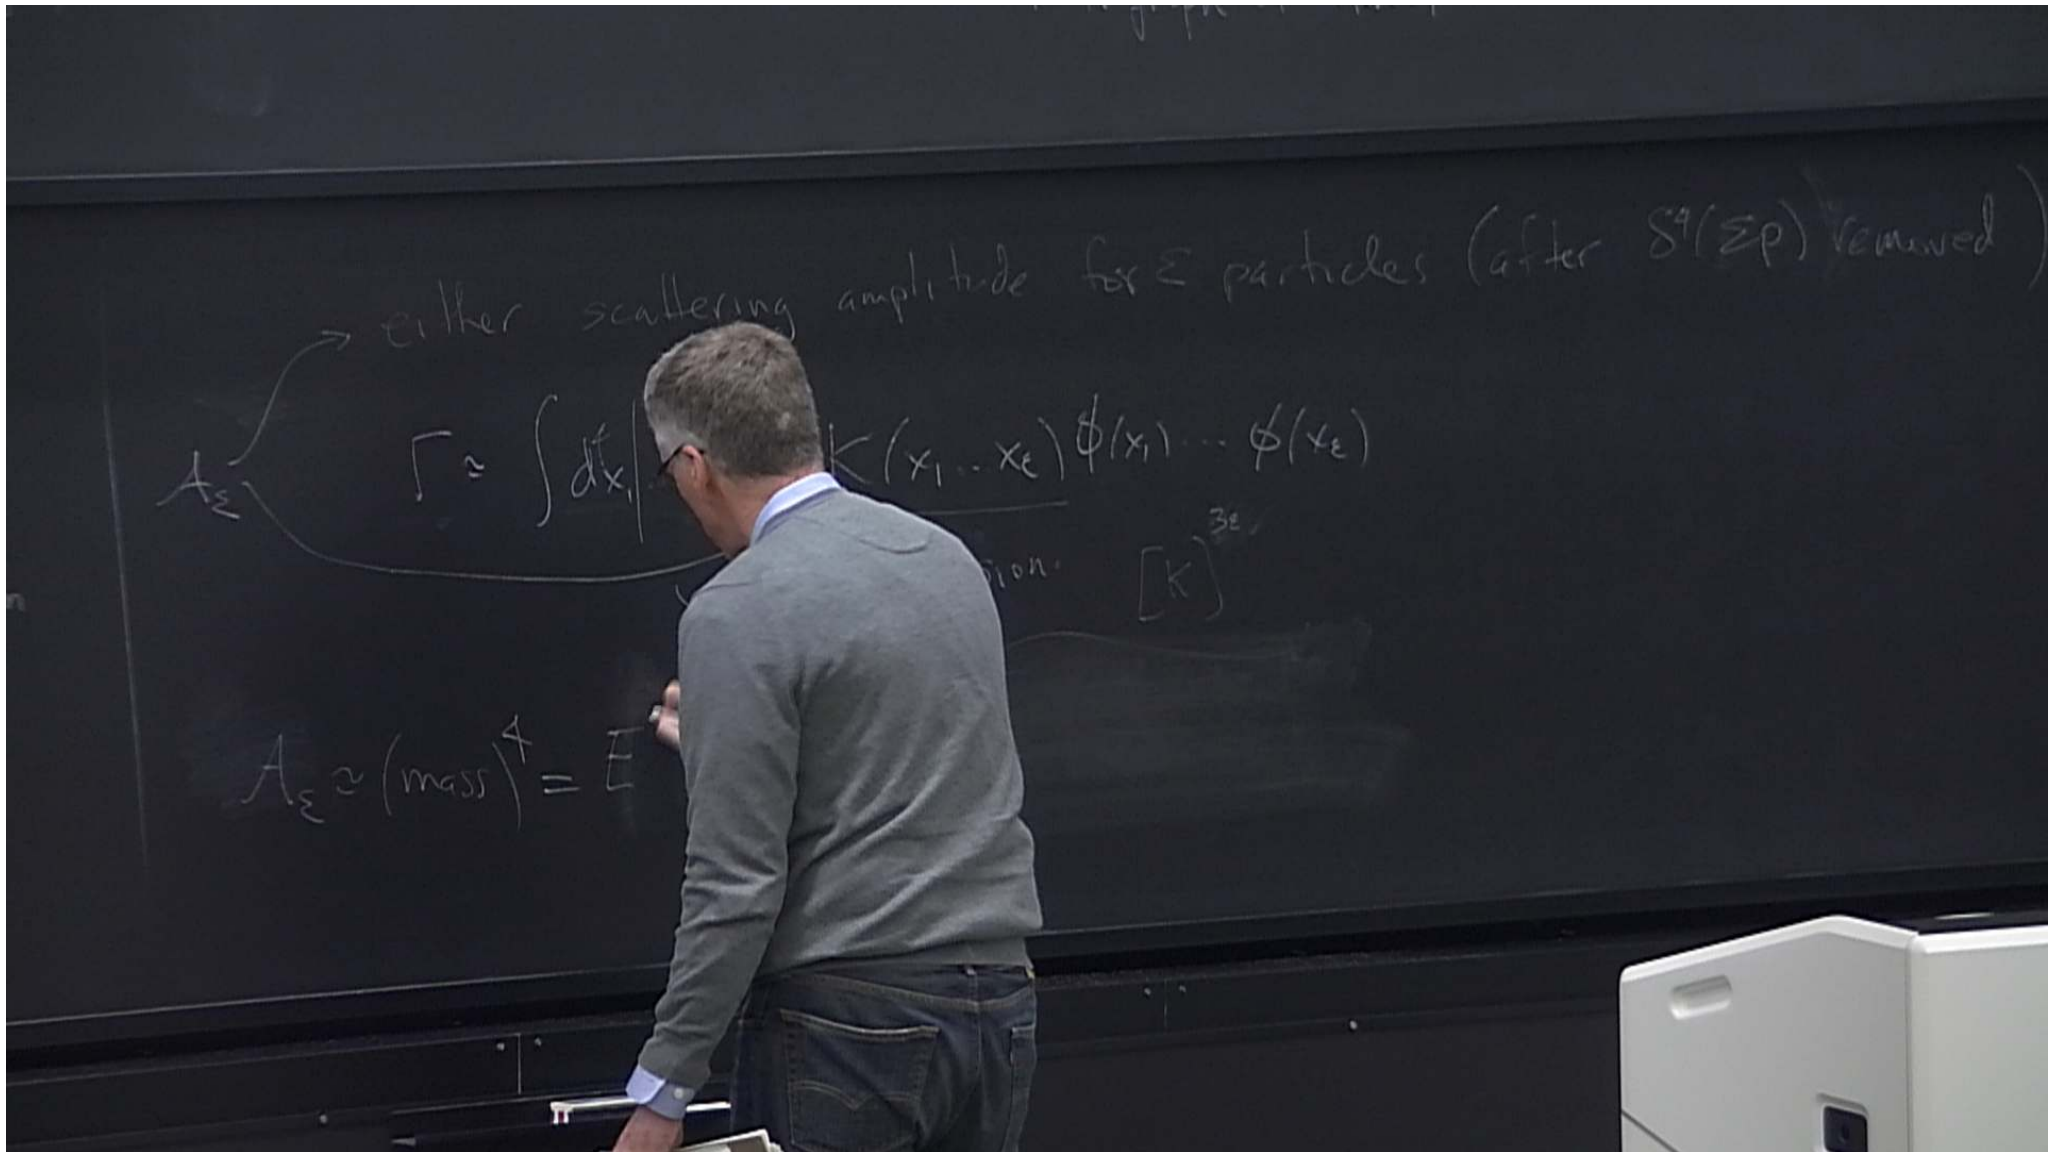 graph
either scattering amplitude for ℰ particles (after δ⁴(Σp) removed)
A_ℰ Γ ≃ ∫ d⁴x₁ K(x₁ .. x_ℰ) ϕ(x₁) ... ϕ(x_ℰ)
[K]^{3ℰ}
A_ℰ ≃ (mass)⁴ = E